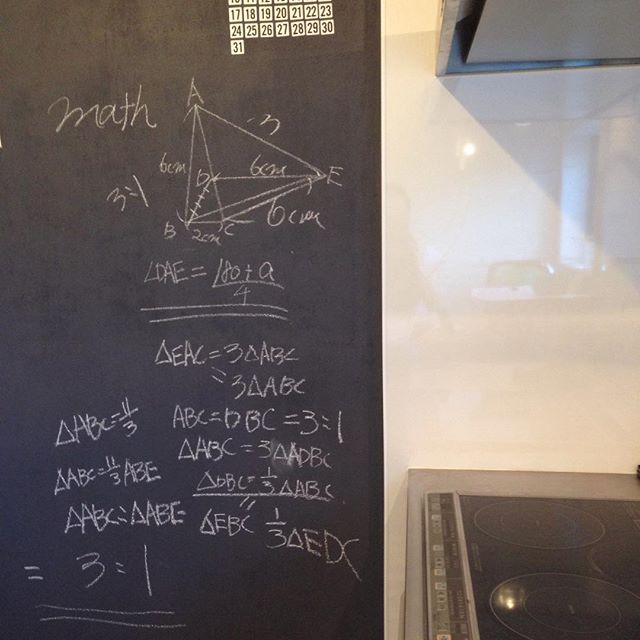 17 18 19 20 21 22 23
24 25 26 27 28 29 30
31
math
A
3
6cm
D
6cm
E
3:1
6cm
B
2cm
C
∠DAE = 180+a/4
△EAC = 3△ABC
= 3△ABC
△ABC = 11/3
ABC = DBC = 3:1
△ABC = 3△ADBC
△ABC = 11/3 ABE
△DBC = 1/3 △ABC
△ABC : △ABE
△EBC 1/3 △EDC
= 3:1